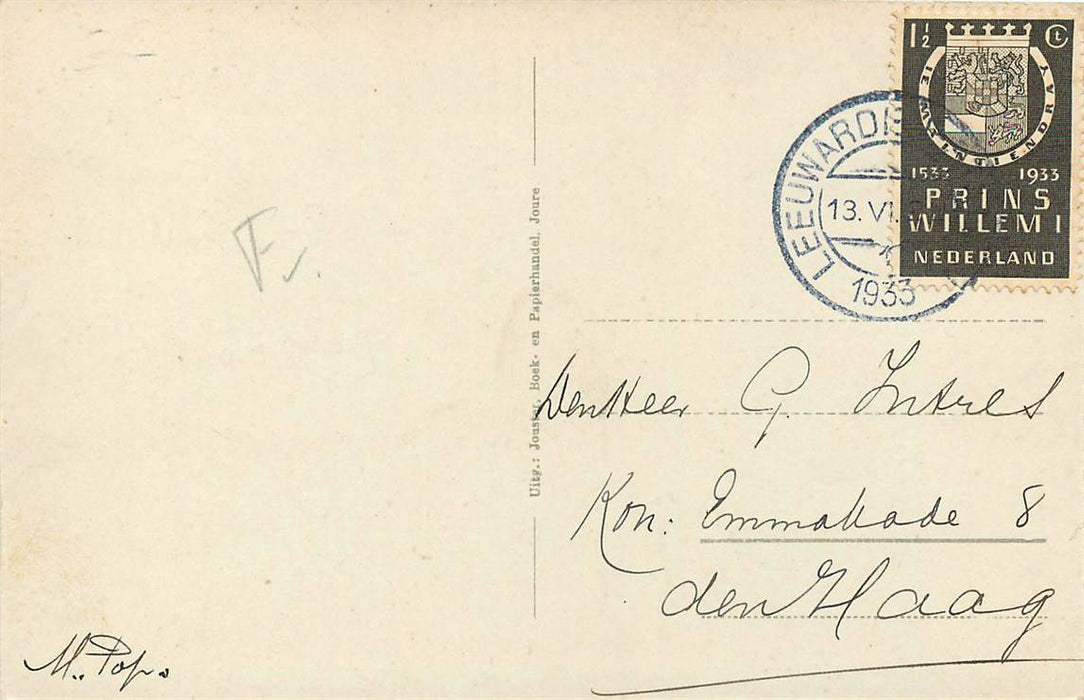 1½ ct
JE MAINTIENDRAY
1533 1933
PRINS
WILLEM I
NEDERLAND
13. VI.
1933
Fr.
Uitg.: Boek- en Papierhandel, Joure
Den Heer G. Intres
Kon: Emmakade 8
den Haag
M. Pop.